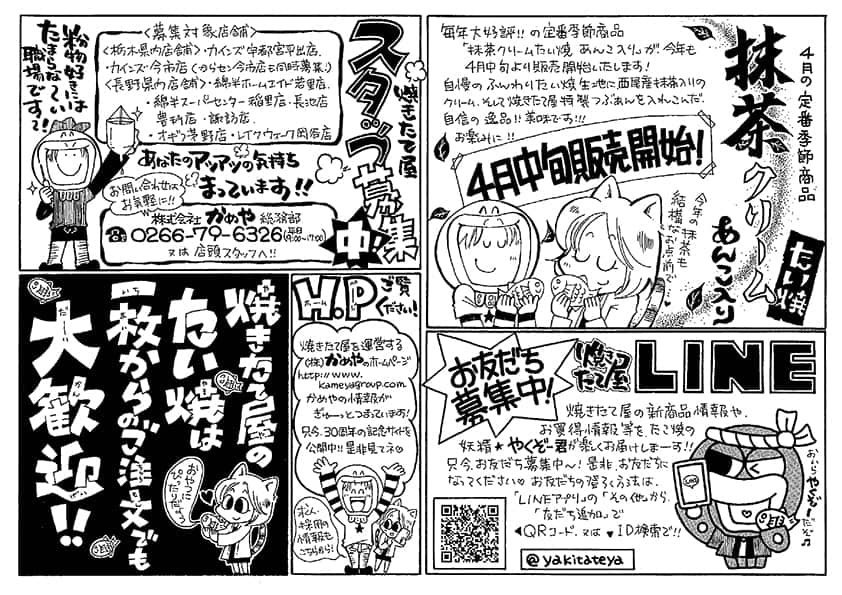 ４月の定番季節商品
抹茶クリーム
あんこ入り
たい焼
毎年大好評!!の定番季節商品
「抹茶クリームたい焼 あんこ入り」が今年も
4月中旬より販売開始いたします!
自慢のふんわりたい焼生地に西尾産抹茶入りの
クリーム、そして焼きたて屋特製つぶあんを入れこんだ、
自信の逸品!!美味です!!!
お楽しみに!!
4月中旬販売開始!
今年の抹茶も
結構なお点前で♥
焼きたて屋
スタッフ募集
中!
<募集対象店舗>
<栃木県内店舗>・カインズ宇都宮平出店、
・カインズ今市店(からセン今市店も同時募集♪)
<長野県内店舗>・綿半ホームエイド若里店、
・綿半スーパーセンター稲里店・長池店
豊科店・諏訪店、
・オギノ茅野店・レイクウォーク岡谷店
粉物好きには
たまらなーい
職場です♡!
あなたのアツアツの気持ち
まっています!!
お問い合わせは
お気軽に!!
株式会社 かめや 総務部
☎ 0266-79-6326(平日9:00〜17:00)
又は 店頭スタッフへ!!
焼きたて屋の
たい焼は
一枚(いちまい)からのご注文でも
大歓迎!!
だーい
かん
げい
おやつに
ぴったりだよう
H.P
ホーム
ご覧
ください!
焼きたて屋を運営する
(株)かめやのホームページ
http://www.
kameyagroup.com
かめやの情報が
ぎゅーっとつまっています!
只今、30周年の記念サイトを
公開中!!是非見てネ♡
求人・
採用の
情報も
こちらから!
お友だち
募集中!
焼きたて屋
LINE
焼きたて屋の新商品情報や、
お買得情報等を、たい焼の
妖精★やくぞー君が楽しくお届けしまーす!!
只今、お友だち募集中〜!是非、お友だちに
なってください♡お友だちの登ろく方法は、
「LINEアプリ」の「その他」から、
「友だち追加」で
◀QRコード、又は▼ID検索で!!
@yakitateya
おいら
やくぞー
だぞ♪
LINE